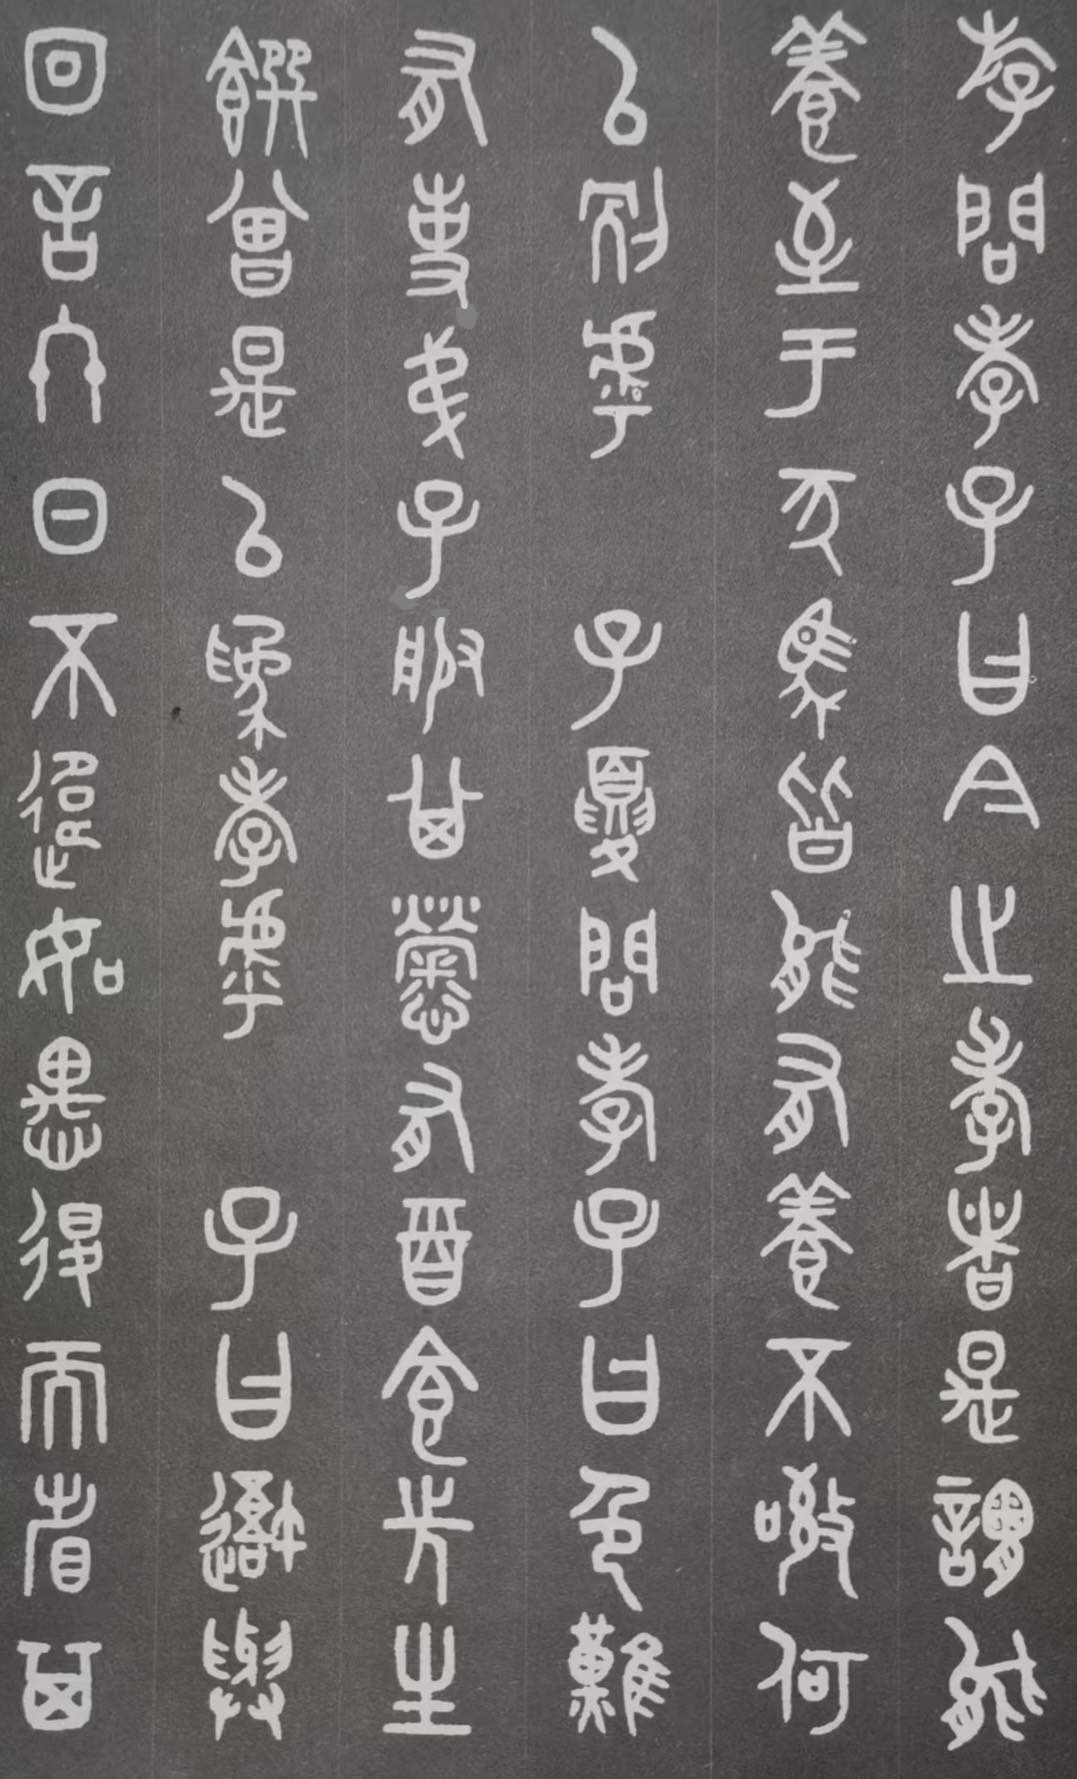 斿問孝子曰今之孝者是謂能
養至于犬馬皆能有養不敬何
以別乎 子夏問孝子曰色難
有事弟子服其勞有酉食先生
饌曾是以為孝乎 子曰吾與
回言終日不違如愚退而省其